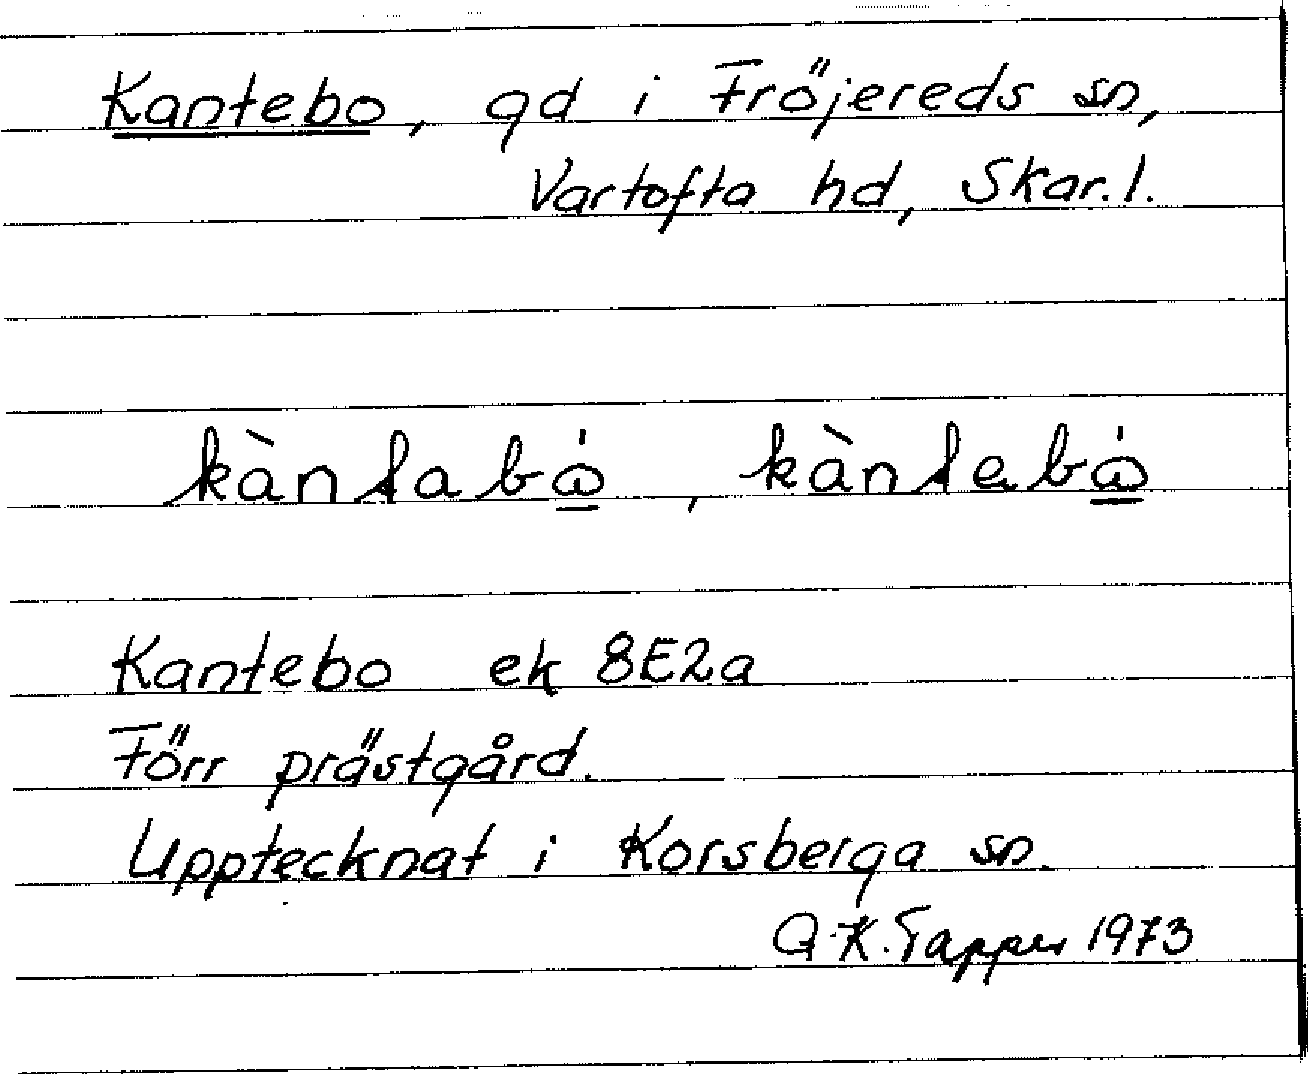 Kantebo, gd i Fröjereds sn,
Vartofta hd, Skar.l.
kàntabω̲̇, kàntebω̲̇
Kantebo ek 8E2a
Förr prästgård.
Upptecknat i Korsberga sn.
A-K. Tapper 1973